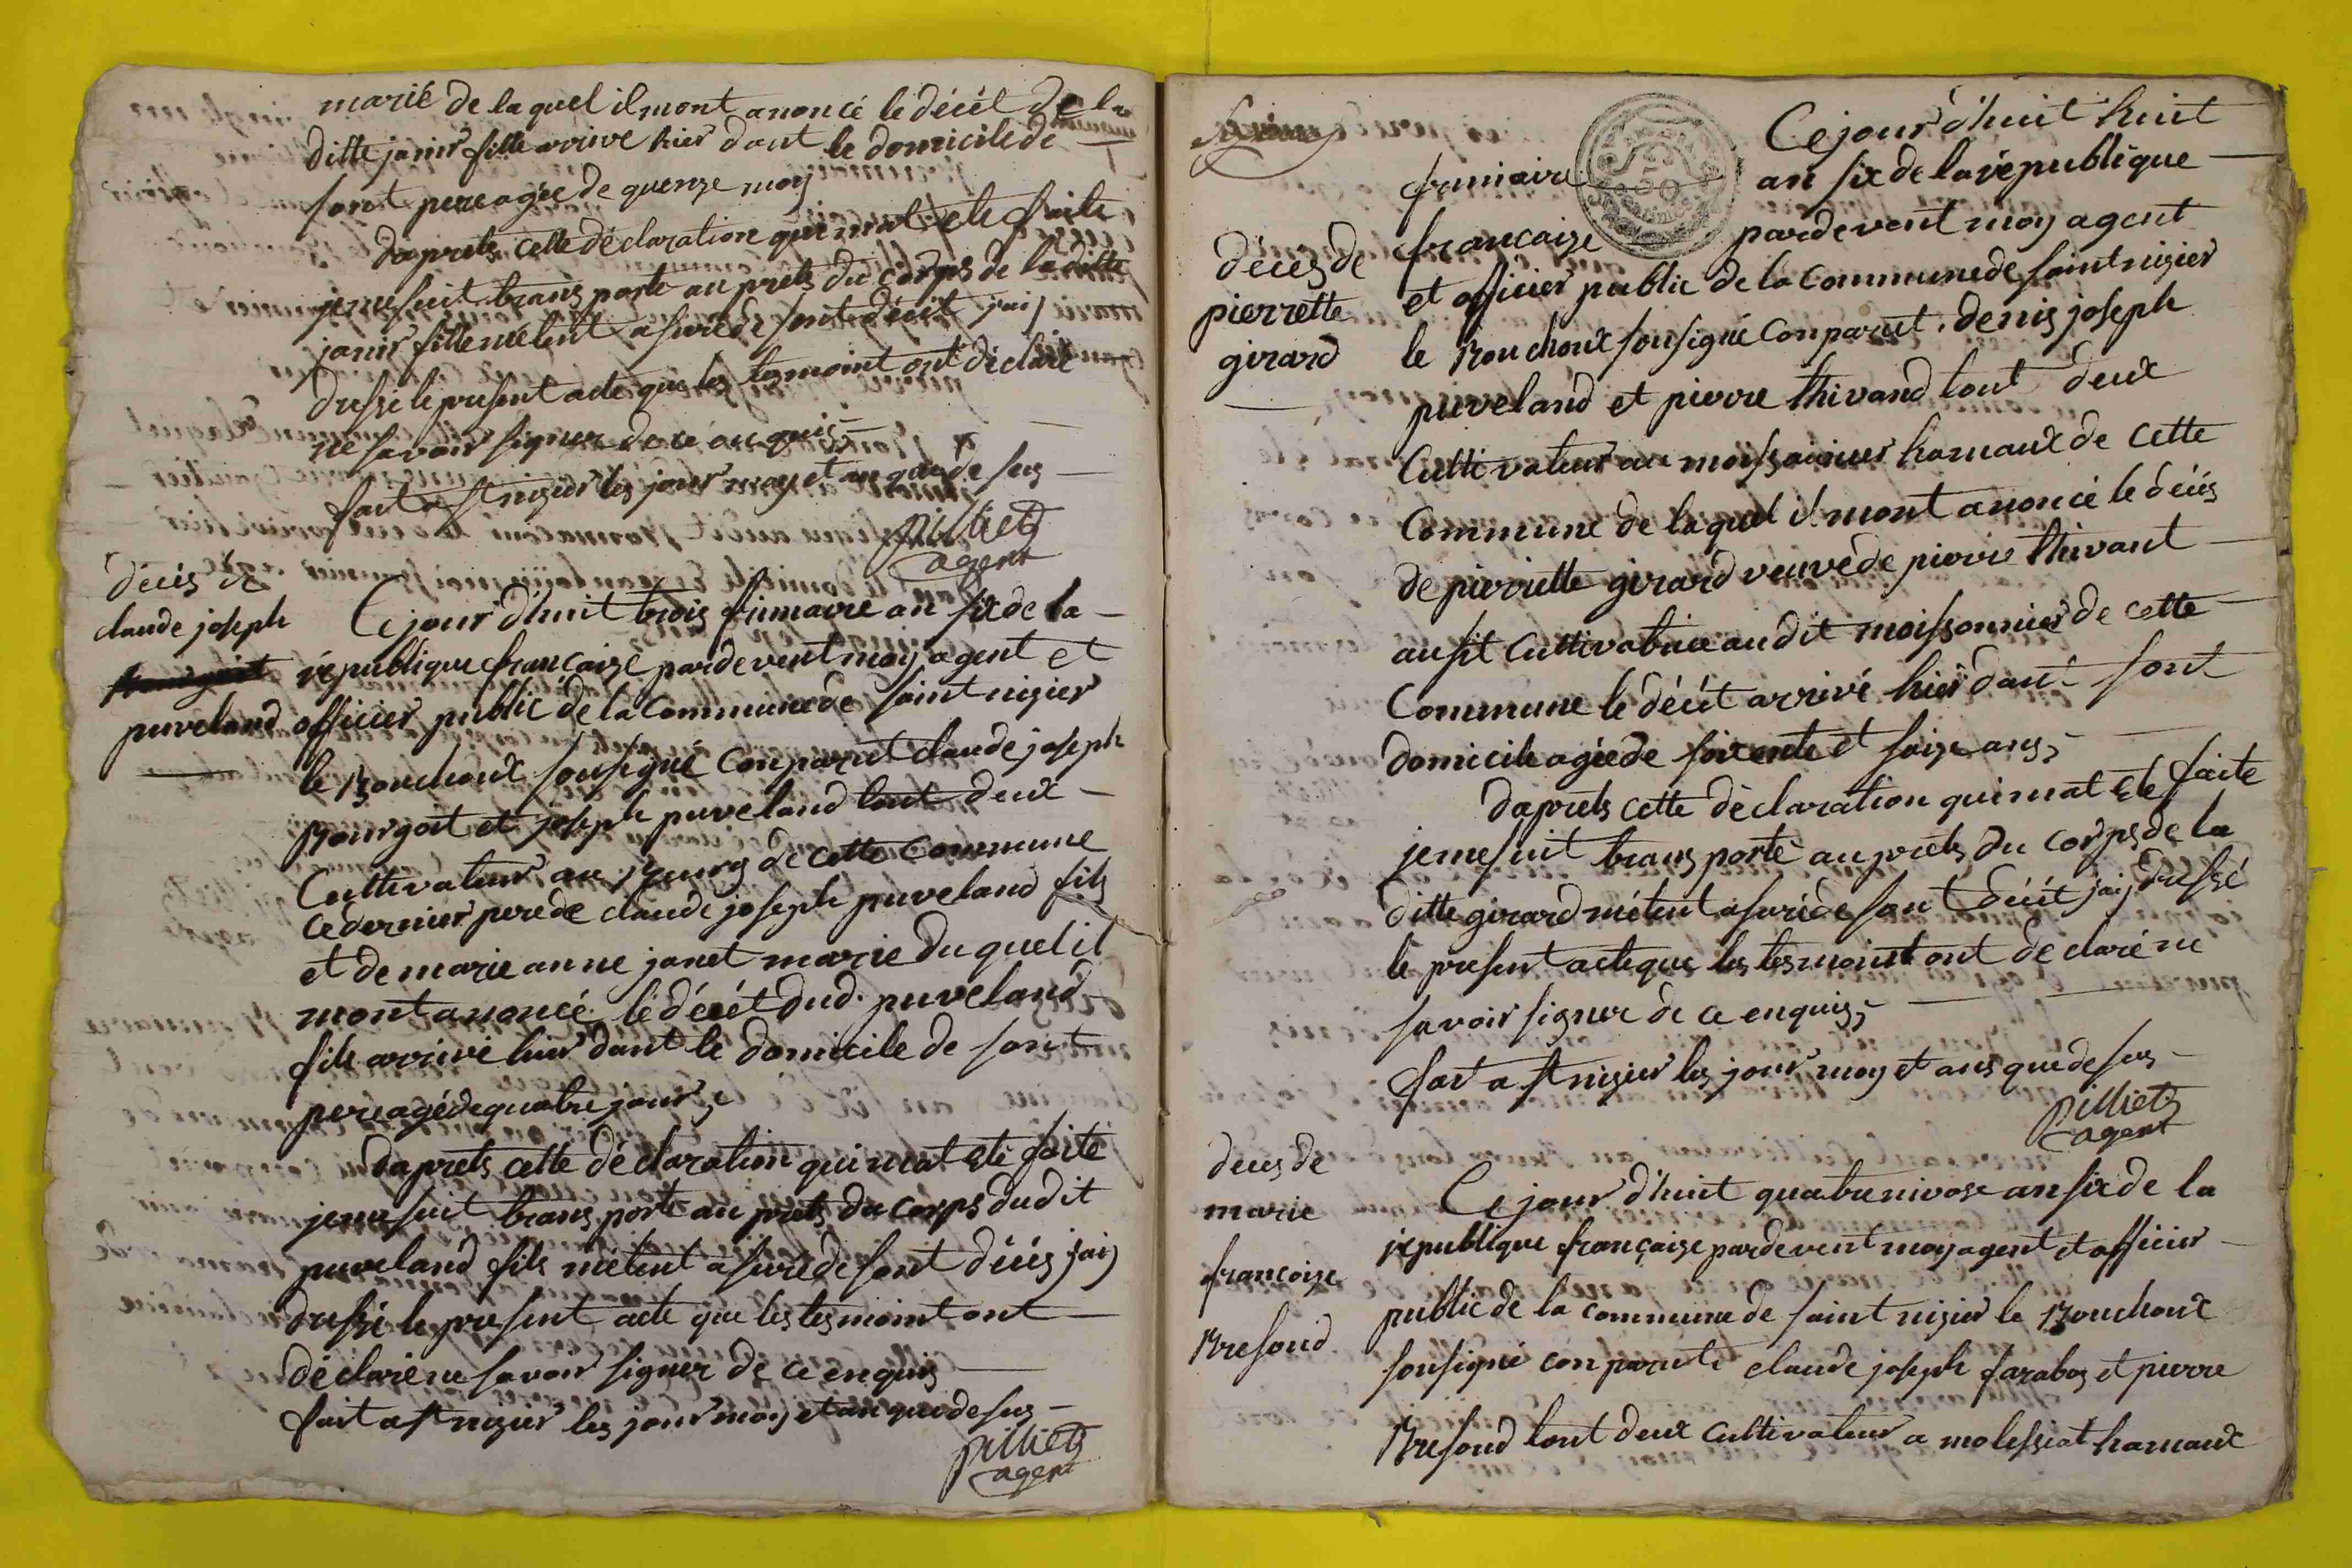 marié de la quel il mont anoncé le décél de la
ditte janir fille arrive hier dant le domicile de
sont pere agée de quenze moy
daprets cette déclaration qui mat ete faite
je me suit transporté au prets du corps de la ditte
janir fille metent asuré de sont décét jaij
dressé le present acte que les temoint ont déclaré
ne savoir signer de ce enquis
fait a st nizier les jour moy et an que de sus
pilliet
agent
décés de
claude joseph
puveland
Ce jour d'huit trois frimaire an six de la
république françaize pardevent moy agent et
officier public de la Commune de saint nizier
le Bouchoux sousigné Comparut claude joseph
Bourgoit et joseph puveland tout deux
Cultivateur au Bourg de cette Commune
ce dernier pere de claude joseph puveland fils
et de marie anne janet marie du quel il
mont anoncé le décét dud. puveland
fils arrivé hier dant le domicile de sont
pere agé de quatre jour
daprets cette déclaration qui mat eté faite
je me suit transporté au prets du corps dudit
puveland fils métent asuré de sont décés jaij
dressé le present acte que les tesmoint ont
déclaré ne savoir signer de ce enquis
fait a st nizier les jour moy et an que de sus
pilliet
agent
50
centimes
Ce jour d'huit huit
frimaire an six de la république
françaize pardevent moy agent
décés de
pierrette
girard
et officier public de la Commune de saint nizier
le Bouchoux sousigné Comparut. denis joseph
puveland et pierre thivand tout deux
Cultivateur au moissonnier hamaux de cette
Commune de laquel il mont anoncé le décés
de pierrette girard veuve de pierre thivant
ausit Cultivatrice audit moissonnier de cette
Commune le décét arrivé hier dant sont
domicile agée de soixente et saize ans
daprets cette déclaration qui mat eté faite
je me suit transporté au prets du corps de la
ditte girard métent asuré de sont décét jaij dressé
le present acte que les tesmoint ont declaré ne
savoir signer de ce enquis
fait a st nizier les jour moy et ans que de sus
pilliet
agent
deces de
marie
francoize
Bresoud
Ce jour d'huit quatre nivose an six de la
république françaize pardevent moy agent et officier
public de la commune de saint nizier le Bouchoux
sousigné conparut claude joseph faraboz et pierre
Bresoud tout deux Cultivateur a molessiat hamaux